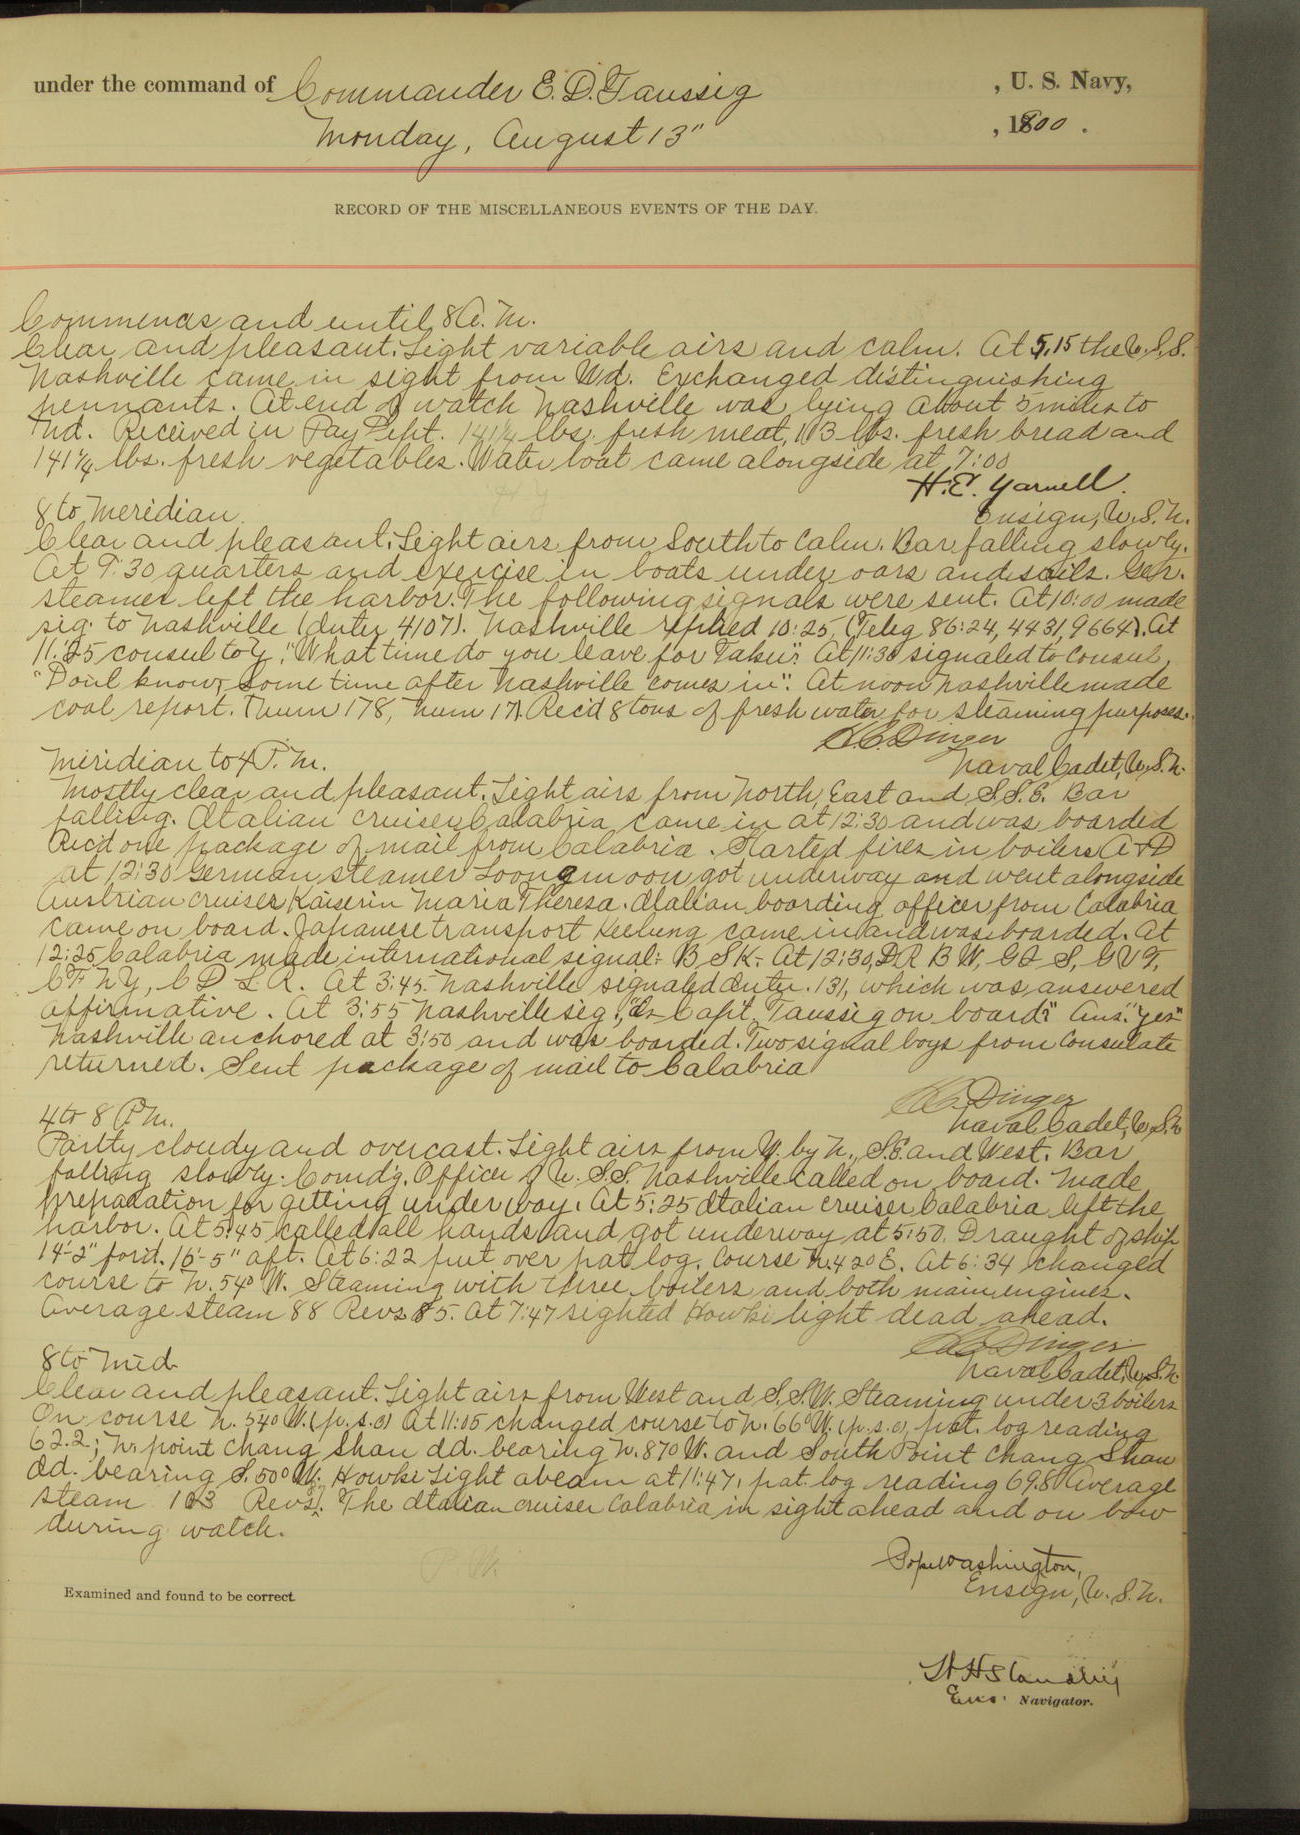 under the command of Commander E. D. Taussig , U. S. Navy,
Monday, August 13" , 1900 .
RECORD OF THE MISCELLANEOUS EVENTS OF THE DAY.
Commences and until 8 A. M.
Clear and pleasant. Light variable airs and calm. At 5.15 the U.S.S.
Nashville came in sight from Wd. Exchanged distinguishing
pennants. At end of watch Nashville was lying about 5 miles to
Nd. Received in Pay Dept. 141¼ lbs. fresh meat, 113 lbs. fresh bread and
141¼ lbs. fresh vegetables. Water boat came alongside at 7:00
H. E. Yarnell.
Ensign, U.S.N.
8 to Meridian
Clear and pleasant. Light airs from South to Calm. Bar falling slowly.
At 9:30 quarters and exercise in boats under oars and sails. Ger.
steamer left the harbor. The following signals were sent. At 10:00 made
sig. to Nashville (Inter 4107). Nashville replied 10:25, (Teleg 86:24, 4431, 9664). At
11:25 consul to Y, "What time do you leave for Taku". At 11:30 signaled to Consul,
"Don't know, some time after Nashville comes in". At noon Nashville made
coal report. Num 178, Num 171. Rec'd 8 tons of fresh water for steaming purposes.
H C Dinger
Naval Cadet, U.S.N.
Meridian to 4 P. M.
Mostly clear and pleasant. Light airs from North, East and S.S.E. Bar
falling. Italian cruiser Calabria came in at 12:30 and was boarded
Rec'd one package of mail from Calabria. Started fires in boilers A & D
at 12:30 German steamer Loongmoon got underway and went alongside
Austrian cruiser Kaiserin Maria Theresa. Italian boarding officer from Calabria
came on board. Japanese transport Keelung came in and was boarded. At
12:25 Calabria made international signal:- B S K:- At 12:30, D R B W, G L S, G U F,
C F N Y, C D L R. At 3:45 Nashville signaled Inter. 131, which was answered
affirmative. At 3:55 Nashville sig., "Is Capt. Taussig on board?" Ans. "yes"
Nashville anchored at 3:50 and was boarded. Two signal boys from Consulate
returned. Sent package of mail to Calabria
H C Dinger
Naval Cadet, U.S.N
4 to 8 P. M.
Partly cloudy and overcast. Light airs from W. by N., S.E. and West. Bar
falling slowly. Comd'g. Officer of U. S.S. Nashville called on board. Made
preparation for getting under way. At 5:25 Italian cruiser Calabria left the
harbor. At 5:45 called all hands and got underway at 5:50. Draught of ship
14'-2" for'd. 15'-5" aft. At 6:22 put over pat log. Course N. 42° E. At 6:34 changed
course to N. 54° W. Steaming with three boilers and both main engines.
Average steam 88 Revs 85. At 7:47 sighted Howki light dead ahead.
H C Dinger
Naval Cadet, U.S.N.
8 to Mid.
Clear and pleasant. Light airs from West and S.S.W. Steaming under 3 boilers
On course N. 54° W. (p.s.c) At 11:05 changed course to N. 66° W. (p.s.c), pat. log reading
62.2; N. point Chang Shan Id. bearing N. 87° W. and South Point Chang Shan
Id. bearing S. 50° W. Howki Light abeam at 11:47, pat. log reading 69.8 Average
steam 103 Revs . The Italian cruiser Calabria in sight ahead and on bow
during watch.
Pope Washington,
Ensign, U. S. N.
Examined and found to be correct.
W H Standley
Ens. Navigator.